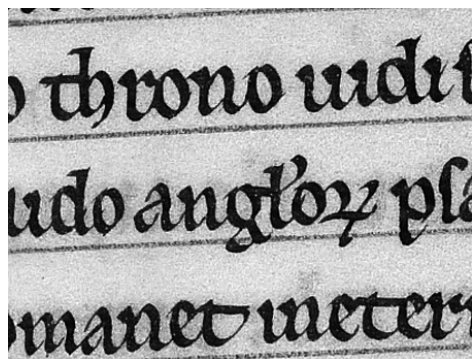 o throno uidi
udo angl'oꝝ psa
manet ineter